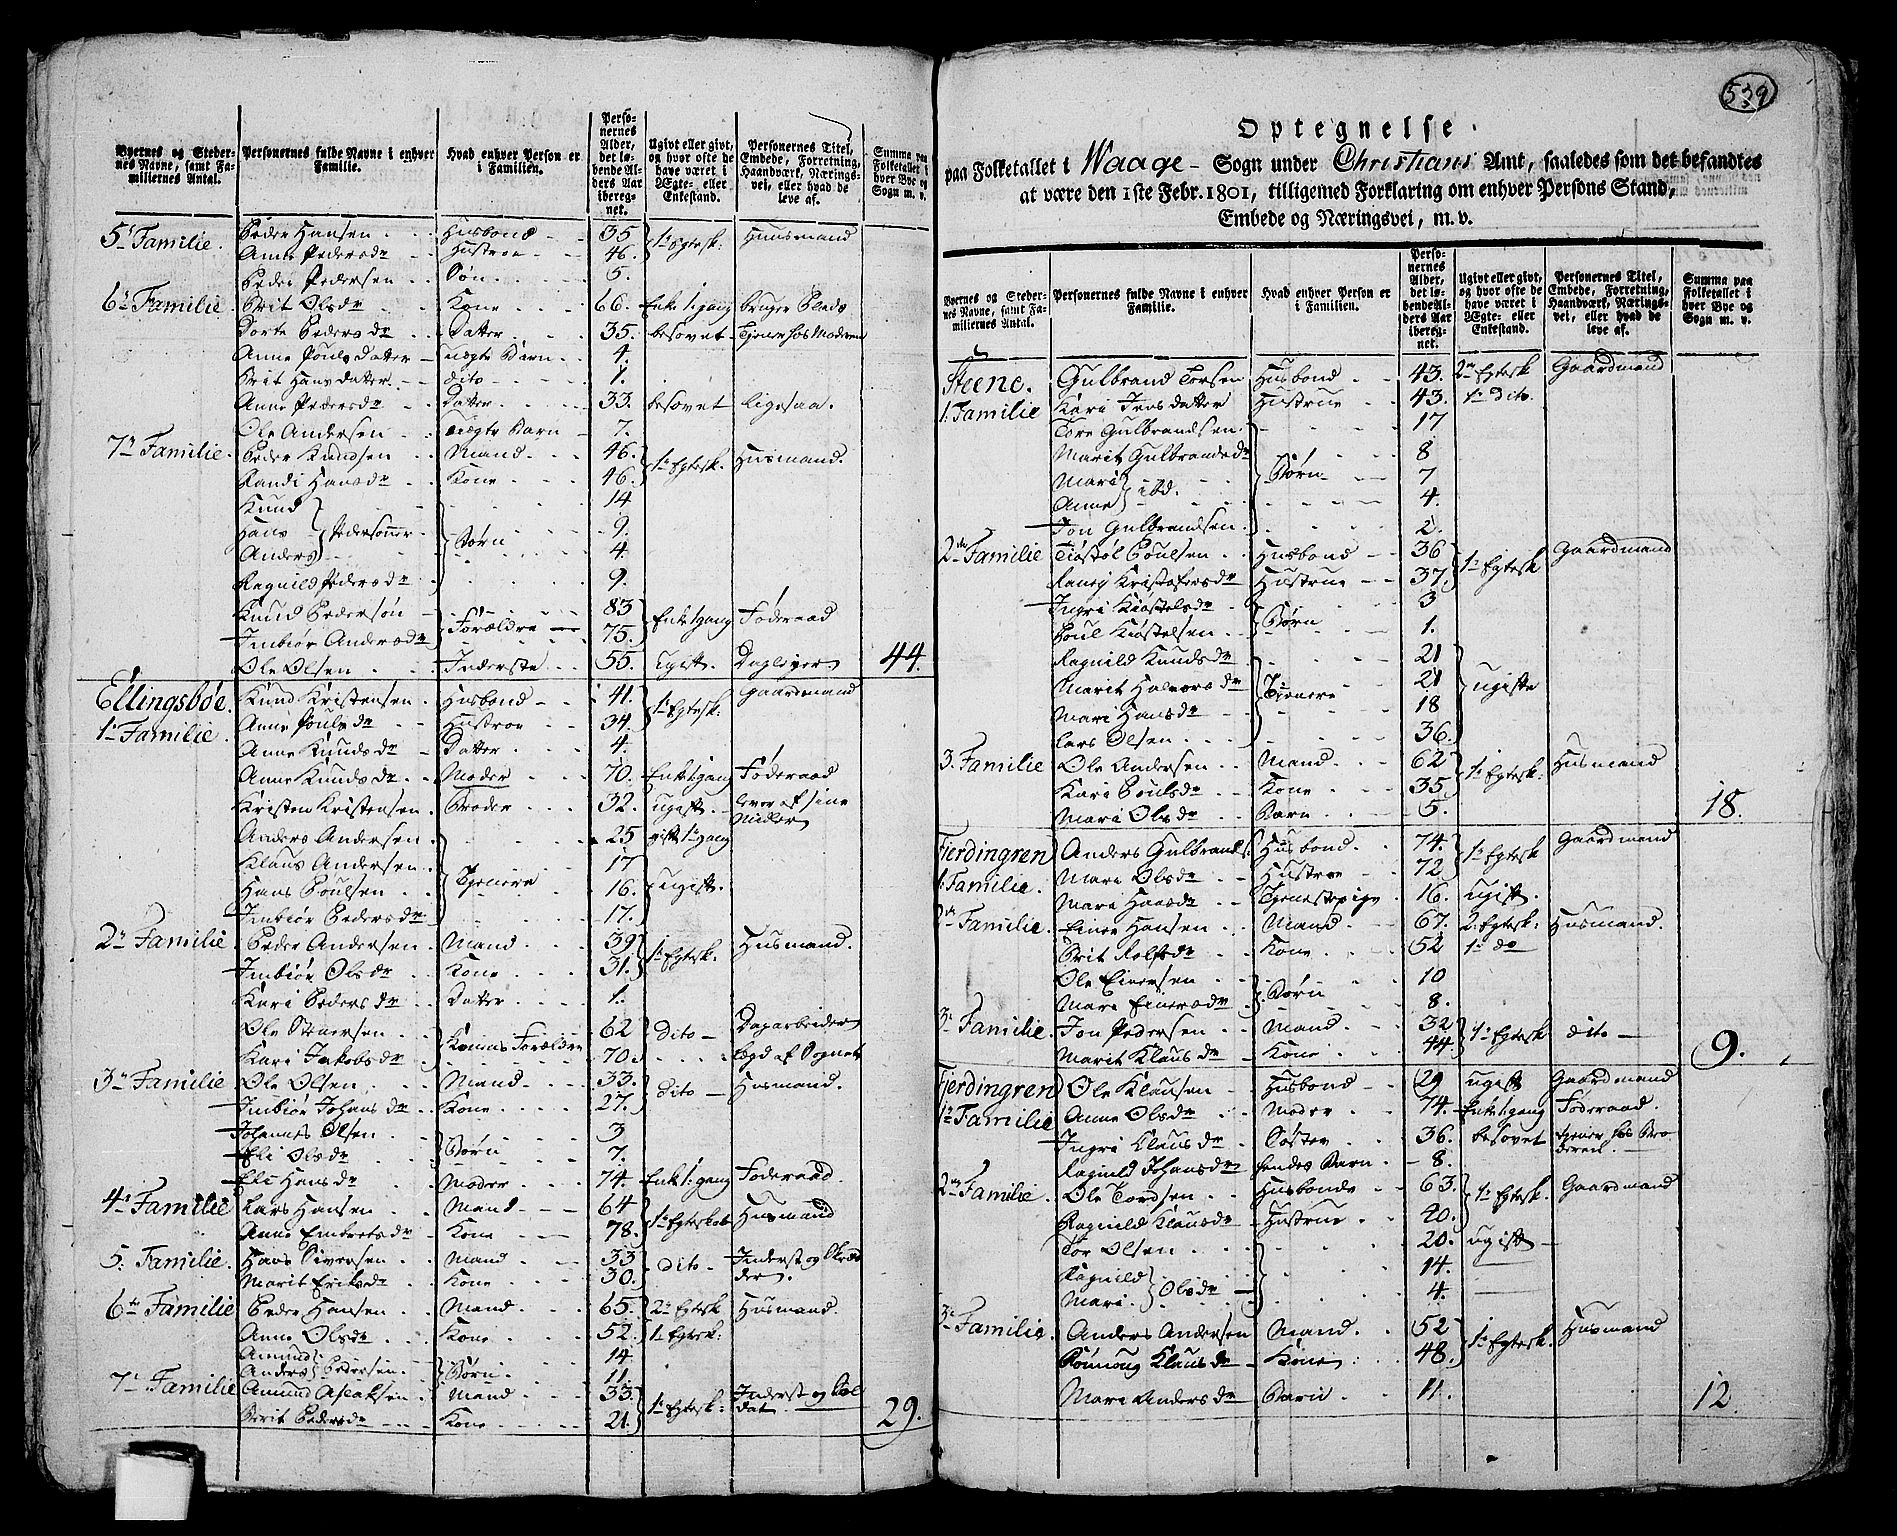 Byernes og Stedernes Navne, samt Familiernes Antal. | Personernes fulde Navne i enhver Familie. | Hvad enhver Person er i Familien. | Personernes Alder, det løbende Alders Aar iberegnet. | Ugivt eller givt, og hvor ofte de have været i Ægte- eller Enkestand. | Personernes Titel, Embede, Forretning, Haandværk, Næringsvei, eller hvad de leve af. | Summa paa Folketallet i hver Bye og Sogn m. v.
5te Familie. Peder Hansen Husbond 35 1te Egtesk. Huusmand
Anne Pedersdr Hustroe 46.
Peder Pedersen Søn 5.
6te Familie Brit Olsdr Kone 66. Enke 1. gang bruger Plads
Dorte Pedersdr Datter 35. besovet Tjener hos Moderen
Anne Pouls Datter uægte Barn 4.
Brit Hans datter dito 1.
Anne Pedersdr Datter 33. besovet ligesaa.
Ole Andersen uægte Barn 7.
7de Familie. Peder Knudsen Mand 46. 1te Egtesk. Husmand.
Randi Hansdr Kone 46.
Knud 14
Hans Pedersønner Børn 9.
Anders 4.
Ragnild Pedersdr 9.
Knud Pedersøn Forældre 83 Enke 1gang Føderaad
Imbiør Andersdr 75.
Ole Olsen Inderste 55. ugift. Daglejer. 44.
Ellingsbøe. Knud Kristensen Husbond 41. 1te Egtesk. gaardmand
1te Familie. Anne Poulsdr Hustroe 34.
Anne Knudsdr Datter 4.
Anne Knudsdr Moder 70. Enke 1gang Føderaad
Kristen Kristensen Broder 32. ugift. lever af sine Midler
Anders Andersen 25 gift 1te gang
Klaus Andersen Tjenere 17 ugift.
Hans Poulsen 16.
Imbiør Pedersdr 17.
2de Familie. Peder Andersen Mand 39. 1te Egtesk. Husmand.
Imbiør Olsdr Kone 31.
Kari Pedersdr Datter 1.
Ole Konens Forældre 62 Dito Dagarbeider
Kari Jakobsdr 70. lægd af Sognet
3de Familie Ole Olsen Mand 33. Dito Husmand.
Imbiør Johansdr Kone 27.
Johannes Olsen Børn 3
Eli Olsdr 7.
Eli Hansdr Moder 74. Enke 1. gang Føderaad
4de Familie Lars Hansen Mand 64 1te Egteskab Husmand
Anne Kone 78.
5. Familie. Hans Siversen Mand 33 Dito Inderst og Skrædder.
Marit Eriksdr Kone 30.
6te Familie Peder Hansen Mand 65. 2de Egtesk Husmand.
Anne Olsdr Kone 52. 1te Egtesk:
Amund Pedersen Børn 14
Anders 11.
7de Familie Amund Aslaksen Mand 33. 1te Egtesk: Inderst og Soldat
Berit Pedersdr Kone 21. 29.
539
Optegnelse
paa Folketallet i Waage Sogn under Christians Amt, saaledes som det befandtes
at være den 1ste Febr. 1801, tilligemed Forklaring om enhver Persons Stand,
Embede og Næringsvei, m. v.
Byernes og Stedernes Navne, samt Familiernes Antal. | Personernes fulde Navne i enhver Familie. | Hvad enhver Person er i Familien. | Personernes Alder, det løbende Alders Aar iberegnet. | Ugivt eller givt, og hvor ofte de have været i Ægte- eller Enkestand. | Personernes Titel, Embede, Forretning, Haandværk, Næringsvei, eller hvad de leve af. | Summa paa Folketallet i hver Bye og Sogn m. v.
Steene. Gulbrand Torsen Husbond 43. 2de Egtesk Gaardmand
1. Familie Kari Jens datter Hustrue 43. 1te Dito.
Tore Gulbrandsen 17
Marit Gulbrandsdr Børn 8
Mari ibd. 7
Anne 4.
Jon Gulbrandsen 2.
2den Familie Kiøstol Poulsen Husbond 36 1te Egtesk Gaardmand
Ranei Kristofersdr Hustrue 37
Ingri Kiøstelsdr Børn 3
Poul Kiøstelsen 1.
Ragnild Knudsdr 21
Marit Halvorsdr Tjenere 21 ugifte
Mari Hansdr 18
Lars Olsen 36.
3. Familie Ole Andersen Mand 62 1te Egtesk: Husmand
Kari Poulsdr Kone 35
Mari Olsdr Barn 5. 18.
Fierdingren Anders Gulbrands: Husbond. 74. 1te Egtesk Gaardmand
1. Familie. Mari Olsdr Hustroe 72
Mari Hansdr Tjenestepige 16. ugift.
2de Familie. Einer Hansen Mand 67. 2. Egtesk: Husmand.
Brit Rolfsdr Kone 52 1te do
Ole Einersen Børn 10
Mari Einersdr 8.
3de Familie. Jon Pedersen Mand 32 1te Egtesk dito
Marit Klausdr Kone 44 9.
Fierdingren Ole Klausen Husbond 29 ugift Gaardmand
1te Familie Anne Olsdr Moder 74. Enke 1. gang Føderaad.
Ingri Klausdr Søster 36. besovet tjener hos Broderen.
Ragnild Johansdr hendes Barn 8.
2den Familie. Ole Tordsen Husbonde 63. 1te Egtesk. Gaardmand
Ragnild Klausdr Hustrue 40.
Tor Olsen 20. ugift
Ragnild Olsdr 14.
Mari 4.
3de Familie. Anders Andersen Mand. 52 1te Egtesk. Husmand
Rønnoug Klausdr Kone 48.
Mari Andersdr Barn 11. 12.